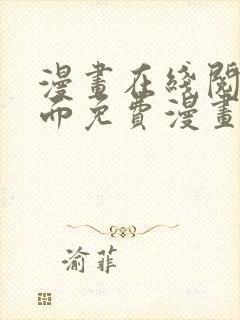 漫畫在綫閱
而免費漫畫
渝菲